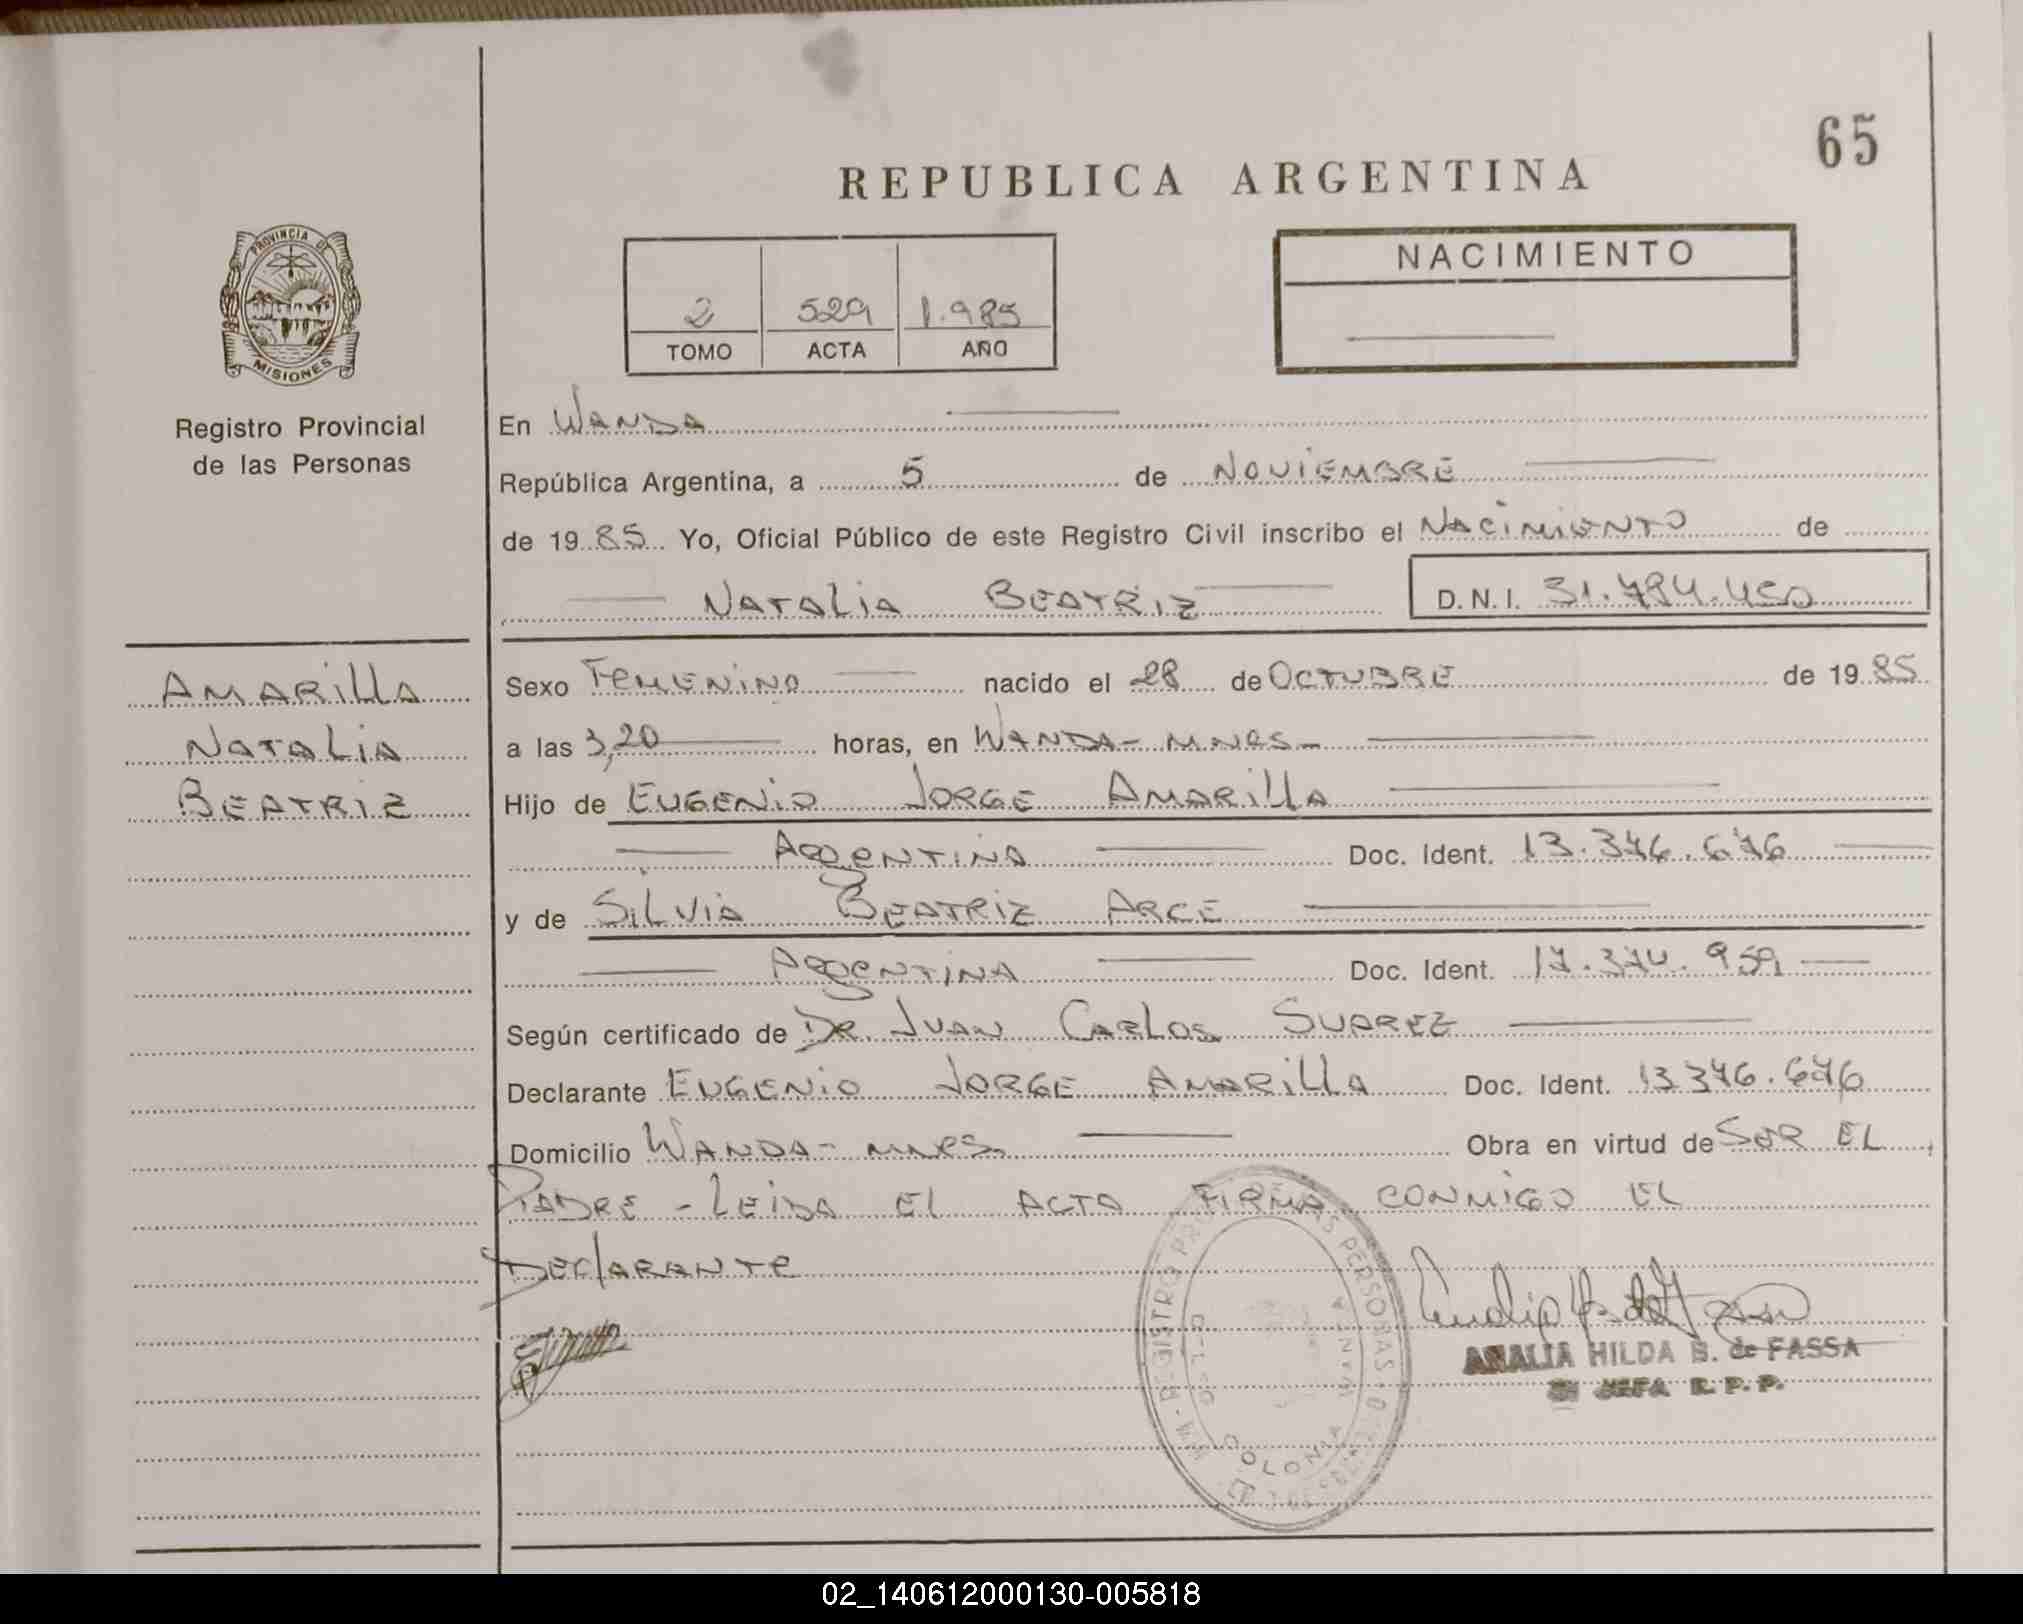 65
REPUBLICA ARGENTINA
PROVINCIA DE
MISIONES
Registro Provincial
de las Personas
2 529 1.985
TOMO ACTA AÑO
NACIMIENTO
En WANDA
República Argentina, a 5 de NOVIEMBRE
de 1985 Yo, Oficial Público de este Registro Civil inscribo el NACIMIENTO de
NATALIA BEATRIZ D.N.I. 31.784.450
AMARILLA
NATALIA
BEATRIZ
Sexo FEMENINO nacido el 28 de OCTUBRE de 1985
a las 3,20 horas, en WANDA-MNES-
Hijo de EUGENIO JORGE AMARILLA
ARGENTINO Doc. Ident. 13.376.676
y de SILVIA BEATRIZ ARCE
ARGENTINA Doc. Ident. 17.374.959
Según certificado de DR. JUAN CARLOS SUAREZ
Declarante EUGENIO JORGE AMARILLA Doc. Ident. 13.376.676
Domicilio WANDA-MNES. Obra en virtud de SER EL
PADRE - LEIDA EL ACTA FIRMA CONMIGO EL
DECLARANTE
REGISTRO PERSONAS
COLONIA WANDA
ANALIA HILDA B. de FASSA
JEFA R. P. P.
02_140612000130-005818